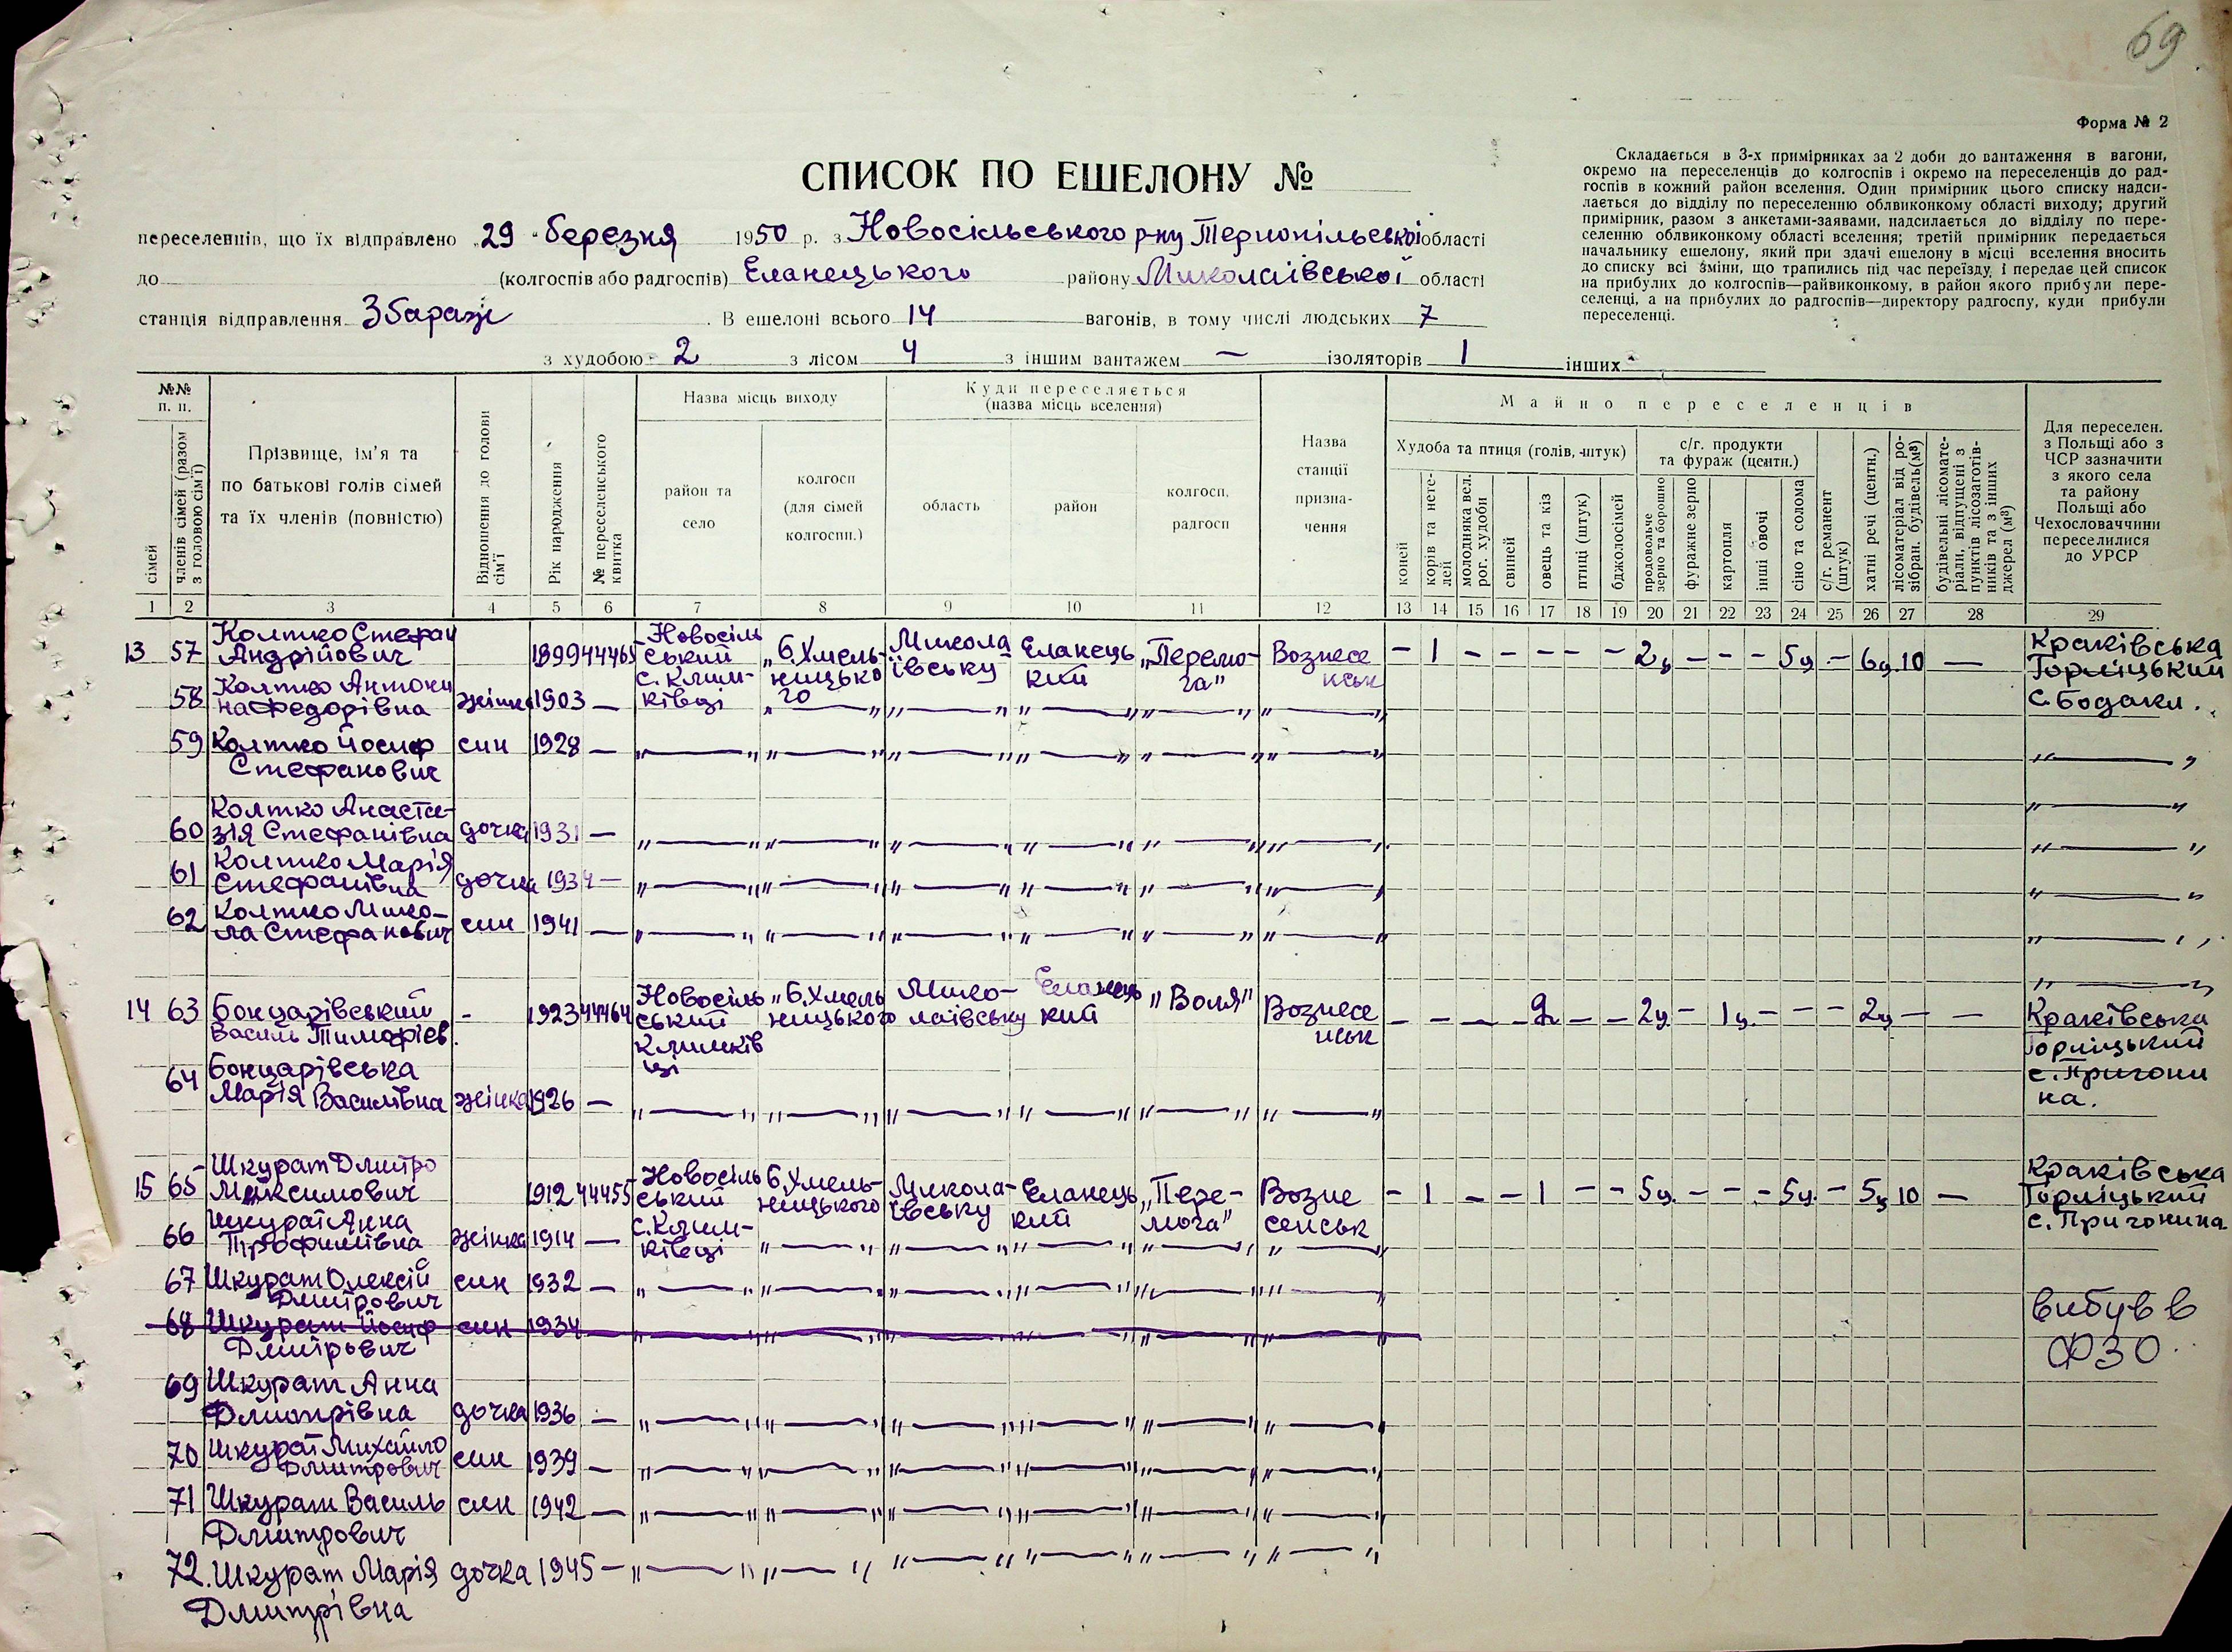 69
Форма № 2
СПИСОК ПО ЕШЕЛОНУ №
Складається в 3-х примірниках за 2 доби до вантаження в вагони,
окремо на переселенців до колгоспів і окремо на переселенців до рад-
госпів в кожний район вселення. Один примірник цього списку надси-
лається до відділу по переселенню облвиконкому області виходу; другий
примірник, разом з анкетами-заявами, надсилається до відділу по пере-
селенню облвиконкому області вселення; третій примірник передається
начальнику ешелону, який при здачі ешелону в місці вселення вносить
до списку всі зміни, що трапились під час переїзду, і передає цей список
на прибулих до колгоспів—райвиконкому, в район якого прибули пере-
селенці, а на прибулих до радгоспів—директору радгоспу, куди прибули
переселенці.
переселенців, що їх відправлено „29" березня 1950 р. з Новосільського р-ну Тернопільської області
до (колгоспів або радгоспів) Еланецького району Миколаівської області
станція відправлення Збараж . В ешелоні всього 14 вагонів, в тому числі людських 7
з худобою 2 з лісом 4 з іншим вантажем — ізоляторів 1 інших
№№ п. п.
сімей
членів сімей (разом з головою сім'ї)
Прізвище, ім'я та
по батькові голів сімей
та їх членів (повністю)
Відношення до голови сім'ї
Рік народження
№ переселенського квитка
Назва місць виходу
район та село
колгосп (для сімей колгоспн.)
Куди переселяється
(назва місць вселення)
область
район
колгосп, радгосп
Назва станції призна- чення
Майно переселенців
Худоба та птиця (голів, штук)
коней
корів та нете- лей
молодняка вел. рог. худоби
свиней
овець та кіз
птиці (штук)
бджолосімей
с/г. продукти та фураж (центн.)
продовольче зерно та борошно
фуражне зерно
картопля
інші овочі
сіно та солома
с/г. реманент (штук)
хатні речі (центн.)
лісоматеріал від ро- зібран. будівель (м³)
будівельні лісомате- ріали, відпущені з пунктів лісозаготів- ників та з інших джерел (м³)
Для переселен.
з Польщі або з
ЧСР зазначити
з якого села
та району
Польщі або
Чехословаччини
переселилися
до УРСР
1 2 3 4 5 6 7 8 9 10 11 12 13 14 15 16 17 18 19 20 21 22 23 24 25 26 27 28 29
13 57 Колтко Стефан Андрійович 1899 44465 Новосільський с. Климківці „Б. Хмель- ницького Миколаївську Еланець кий „Перемо- га" Вознесенськ — 1 — — — — — 2ц — — — 5ц — 6ц 10 — Краківська Горліцький с. Бодаки.
58 Колтко Антони на Федорівна жінка 1903 — „ — " „ — " „ — " „ — " „ — "
59 Колтко Йосиф Стефанович син 1928 — „ — " „ — " „ — " „ — " „ — " „ — " „ — "
60 Колтко Анаста- зія Стефанівна дочка 1931 — „ — " „ — " „ — " „ — " „ — " „ — " „ — "
61 Колтко Марія Стефанівна дочка 1934 — „ — " „ — " „ — " „ — " „ — " „ — " „ — "
62 Колтко Мико- ла Стефанович син 1941 — „ — " „ — " „ — " „ — " „ — " „ — " „ — "
14 63 Бонцарівський Василь Тимофієв. - 1923 44464 Новосіль ський Климків ці „Б. Хмель ницького Мико- лаівську Еланець кий „Воля" Вознесе нськ — — — — 2 — — 2ц — 1ц — — — 2ц — — Краківська Горліцький с. Пригони на.
64 Бонцарівська Марія Василівна жінка 1926 — „ — " „ — " „ — " „ — " „ — " „ — "
15 65 Шкурат Дмитро Максимович 1912 44455 Новосіль ський с. Клим- ківці Б. Хмель- ницького Микола- ївську Еланець кий „Пере- мога" Возне сенськ — 1 — — 1 — — 5ц. — — — 5ц. — 5ц 10 — Краківська Горліцький с. Пригонина
66 Шкурат Анна Трофимівна жінка 1914 — „ — " „ — " „ — " „ — " „ — "
67 Шкурат Олексій Дмитрович син 1932 — „ — " „ — " „ — " „ — " „ — " „ — "
68 Шкурат Йосиф Дмитрович син 1934 „ — " „ — " „ — " „ — " „ — " „ — " вибув в ФЗО.
69 Шкурат Анна Дмитрівна дочка 1936 — „ — " „ — " „ — " „ — " „ — " „ — "
70 Шкурат Михайло Дмитрович син 1939 — „ — " „ — " „ — " „ — " „ — " „ — "
71 Шкурат Василь Дмитрович син 1942 — „ — " „ — " „ — " „ — " „ — " „ — "
72. Шкурат Марія Дмитрівна дочка 1945 — „ — " „ — " „ — " „ — " „ — " „ — "